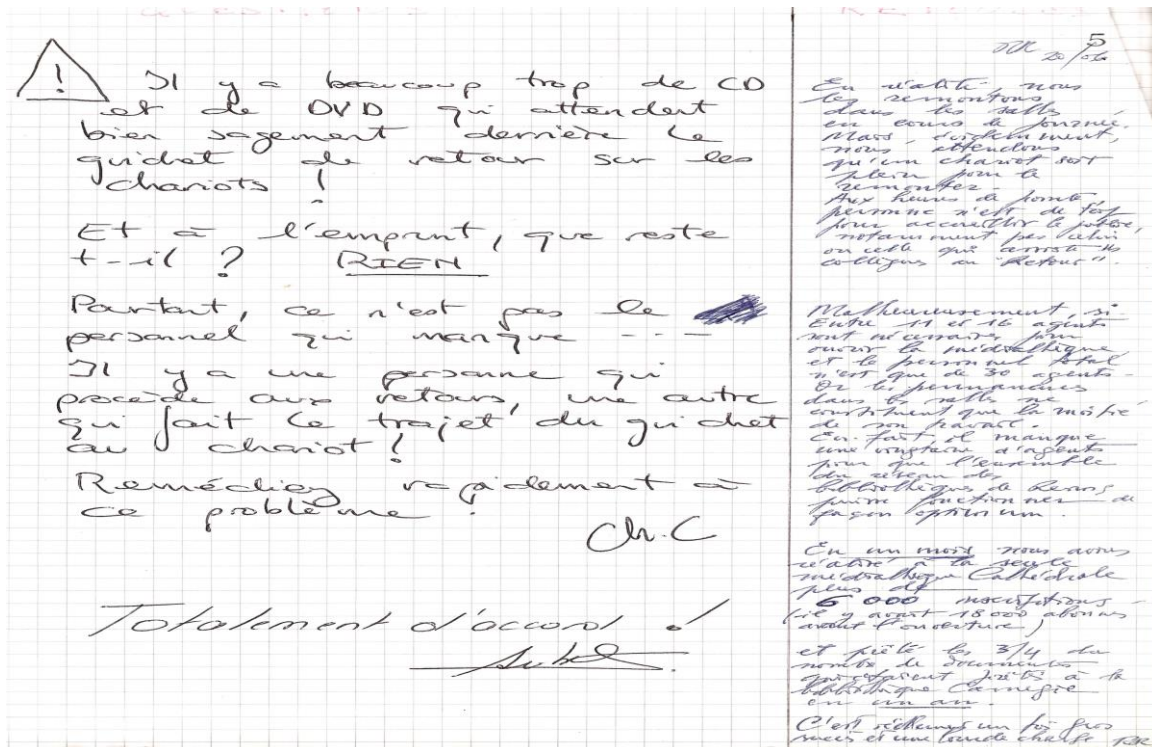 !
Il y a beaucoup trop de CD
et de DVD qui attendent
bien sagement derrière le
guichet de retour sur les
chariots !
Et à l'emprunt, que reste
t-il ? RIEN
Pourtant, ce n'est pas le
personnel qui manque ---
Il y a une personne qui
procède aux retours, une autre
qui fait le trajet du guichet
au chariot !
Remédiez rapidement à
ce problème.
Ch.C
Totalement d'accord !
5
En réalité, nous
les remontons
dans les salles
en cours de journée.
Mais, évidemment,
nous attendons
qu'un chariot soit
plein pour le
remonter.
Aux heures de pointe
personne n'est de trop
pour accueillir le public,
notamment par celui
ou celle qui assiste les
collègues au "Retour".
Malheureusement, si.
Entre 11 et 16 agents
sont nécessaires pour
ouvrir la médiathèque
et le personnel total
n'est que de 30 agents.
Or les permanences
dans les salles ne
constituent que la moitié
de son travail.
En fait il manque
une vingtaine d'agents
pour que l'ensemble
du réseau des
bibliothèques de Reims
puisse fonctionner de
façon optimum.
En un mois nous avons
réalisé à la seule
médiathèque Cathédrale
plus de
6 000 inscriptions
(il y avait 18 000 abonnés
avant l'ouverture)
et prêté les 3/4 du
nombre de documents
qui étaient prêtés à la
bibliothèque Carnegie
en un an.
C'est réellement un fois gros
succès et une lourde charge